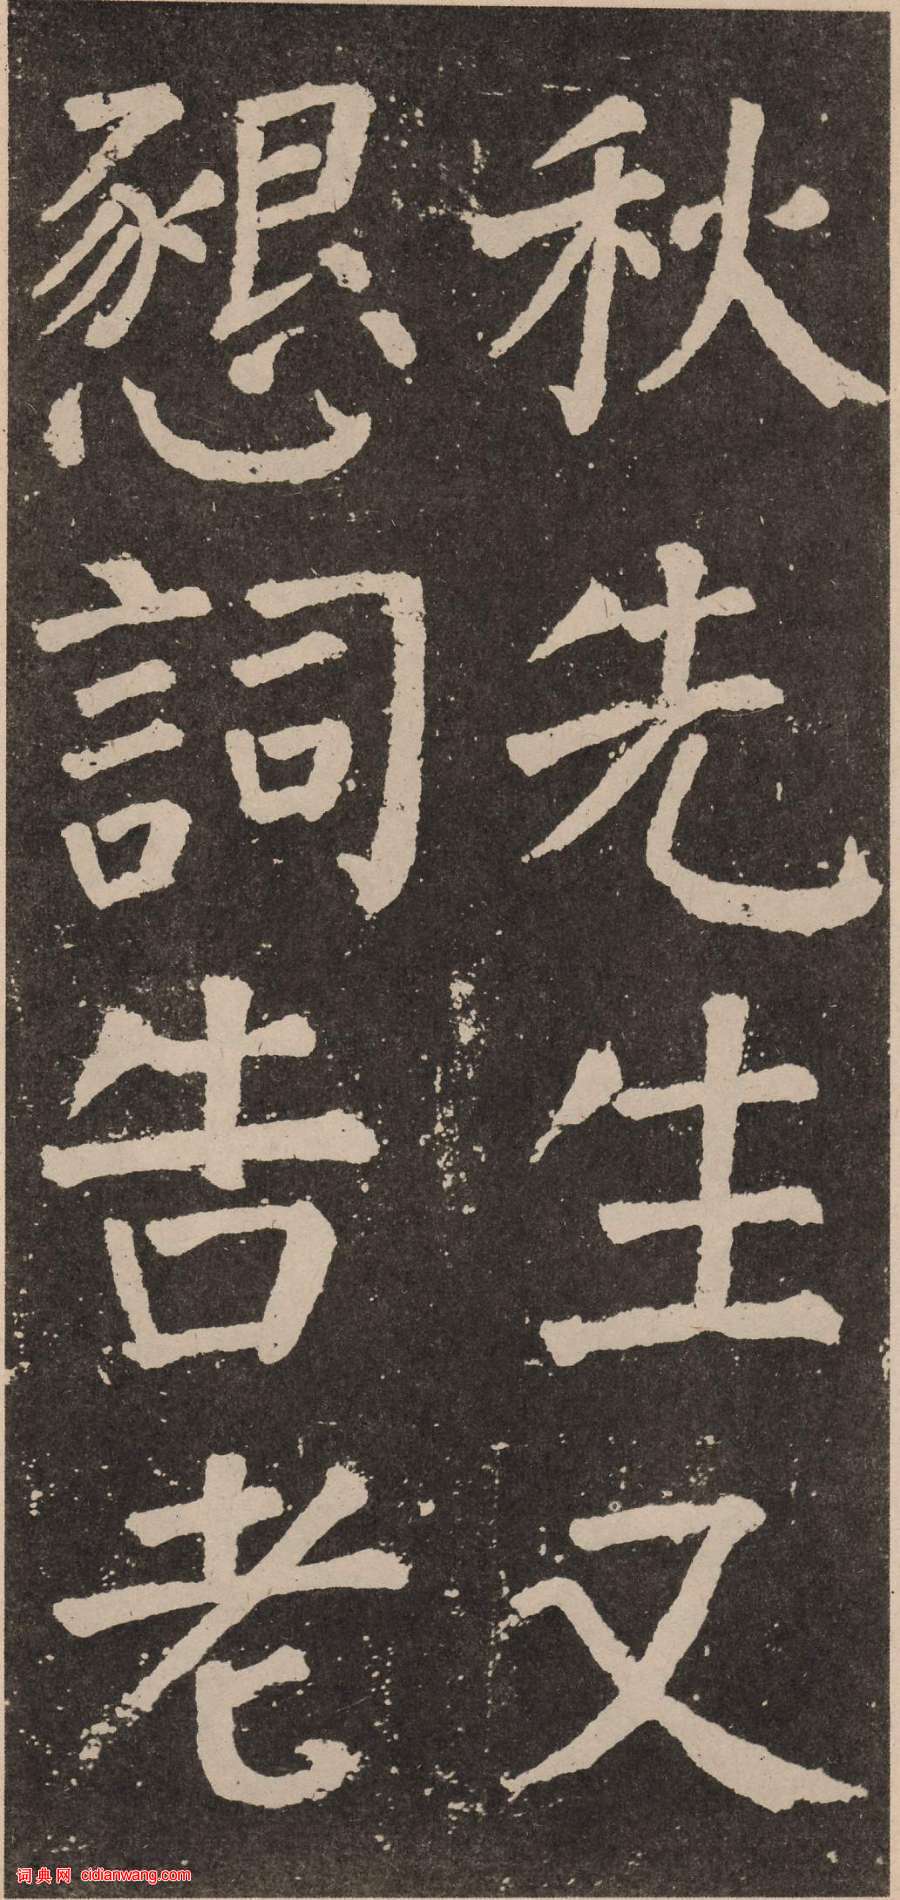 秋先生又
懇詞告老
词典网 cidianwang.com